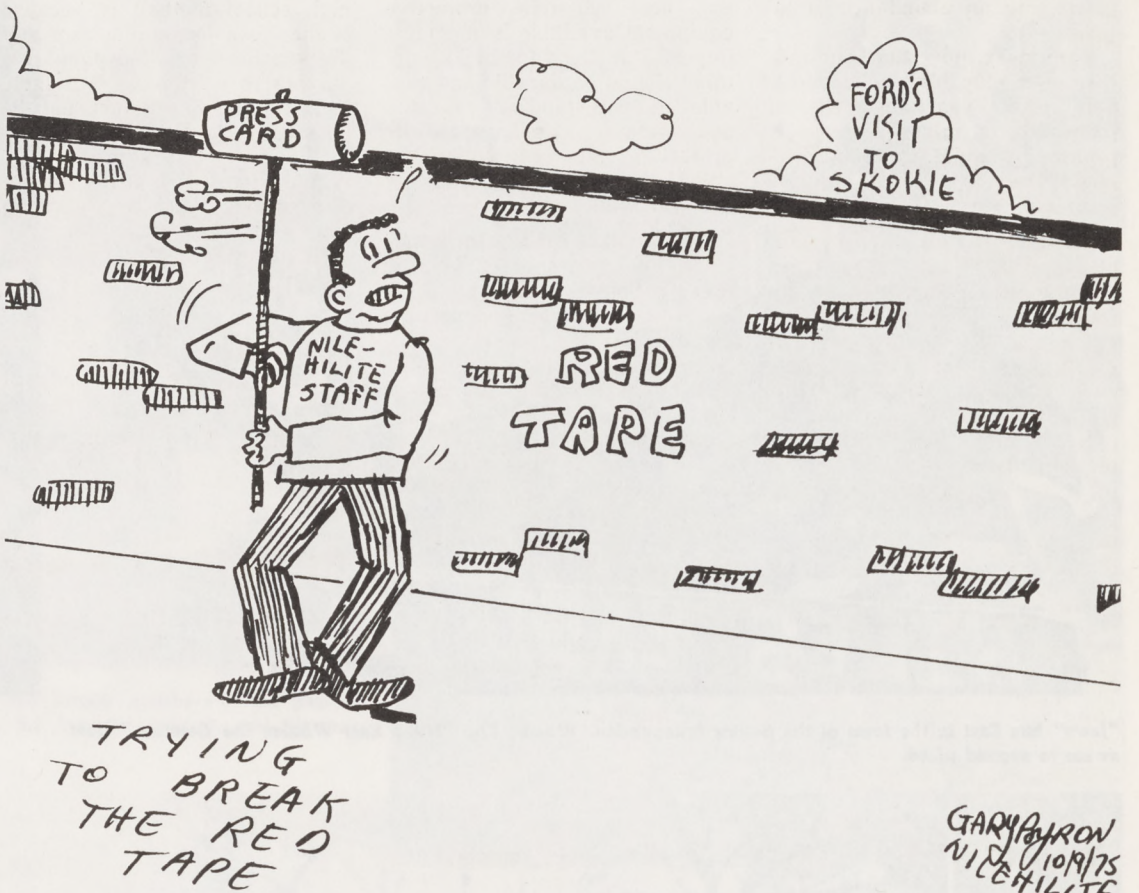 PRESS
CARD
FORD'S
VISIT
TO
SKOKIE
NILE-
HILITE
STAFF
RED
TAPE
TRYING
TO BREAK
THE RED
TAPE
GARY
10/9/75
NILEHILITE